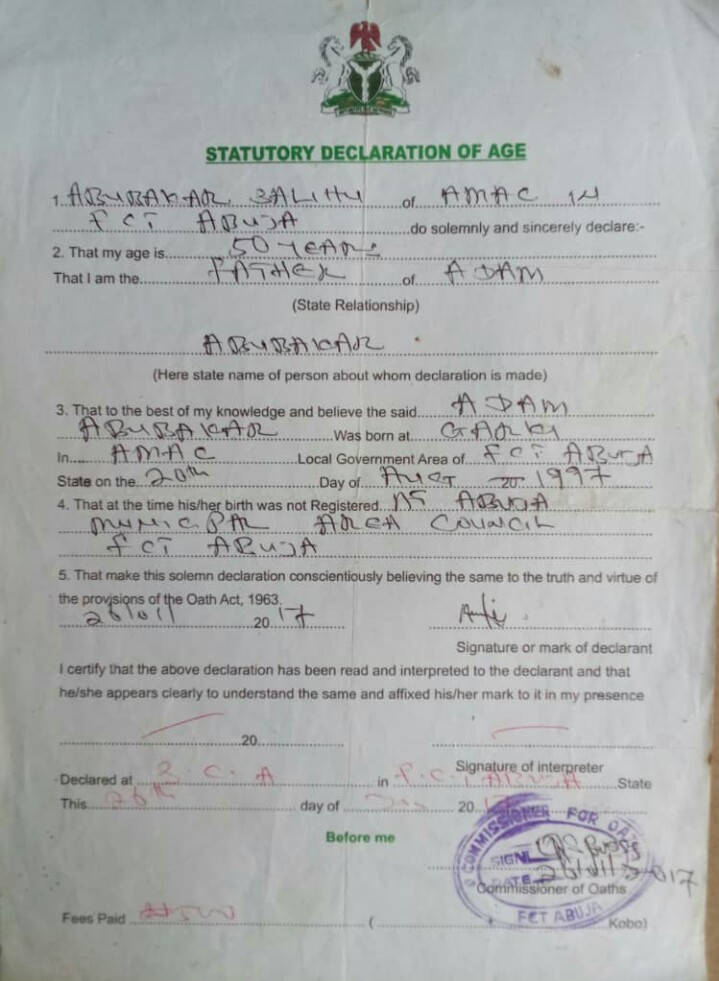 STATUTORY DECLARATION OF AGE
1. ABUBAKAR SALIHU of AMAC IN
FCT ABUJA do solemnly and sincerely declare:-
2. That my age is 50 YEARS
That I am the FATHER of ADAM
(State Relationship)
ABUBAKAR
(Here state name of person about whom declaration is made)
3. That to the best of my knowledge and believe the said ADAM
ABUBAKAR Was born at GARKI
In AMAC Local Government Area of FCT ABUJA
State on the 20th Day of 20 1997
4. That at the time his/her birth was not Registered ABUJA
AREA COUNCIL
FCT ABUJA
5. That make this solemn declaration conscientiously believing the same to the truth and virtue of
the provisions of the Oath Act, 1963.
26/01/ 2017
Signature or mark of declarant
I certify that the above declaration has been read and interpreted to the declarant and that
he/she appears clearly to understand the same and affixed his/her mark to it in my presence
20
Signature of interpreter
Declared at in F.C.T ABUJA State
This 26th day of 20
Before me
COMMISSIONER FOR OATH
SIGN
DATE 26/01/2017
Commissioner of Oaths
FCT ABUJA
Fees Paid ( Kobo)